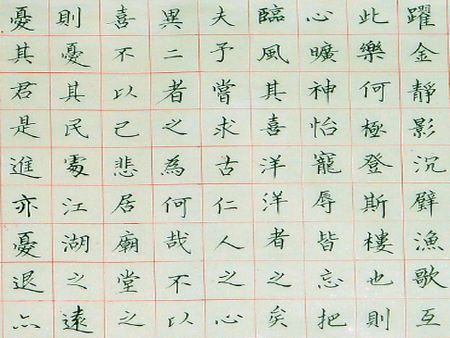 躍金靜影沉璧漁歌互
此樂何極登斯樓也則
心曠神怡寵辱皆忘把
臨風其喜洋洋者之矣
夫予嘗求古仁人之心
異二者之為何哉不以
喜不以己悲居廟堂之
則憂其民處江湖之遠
憂其君是進亦憂退亦